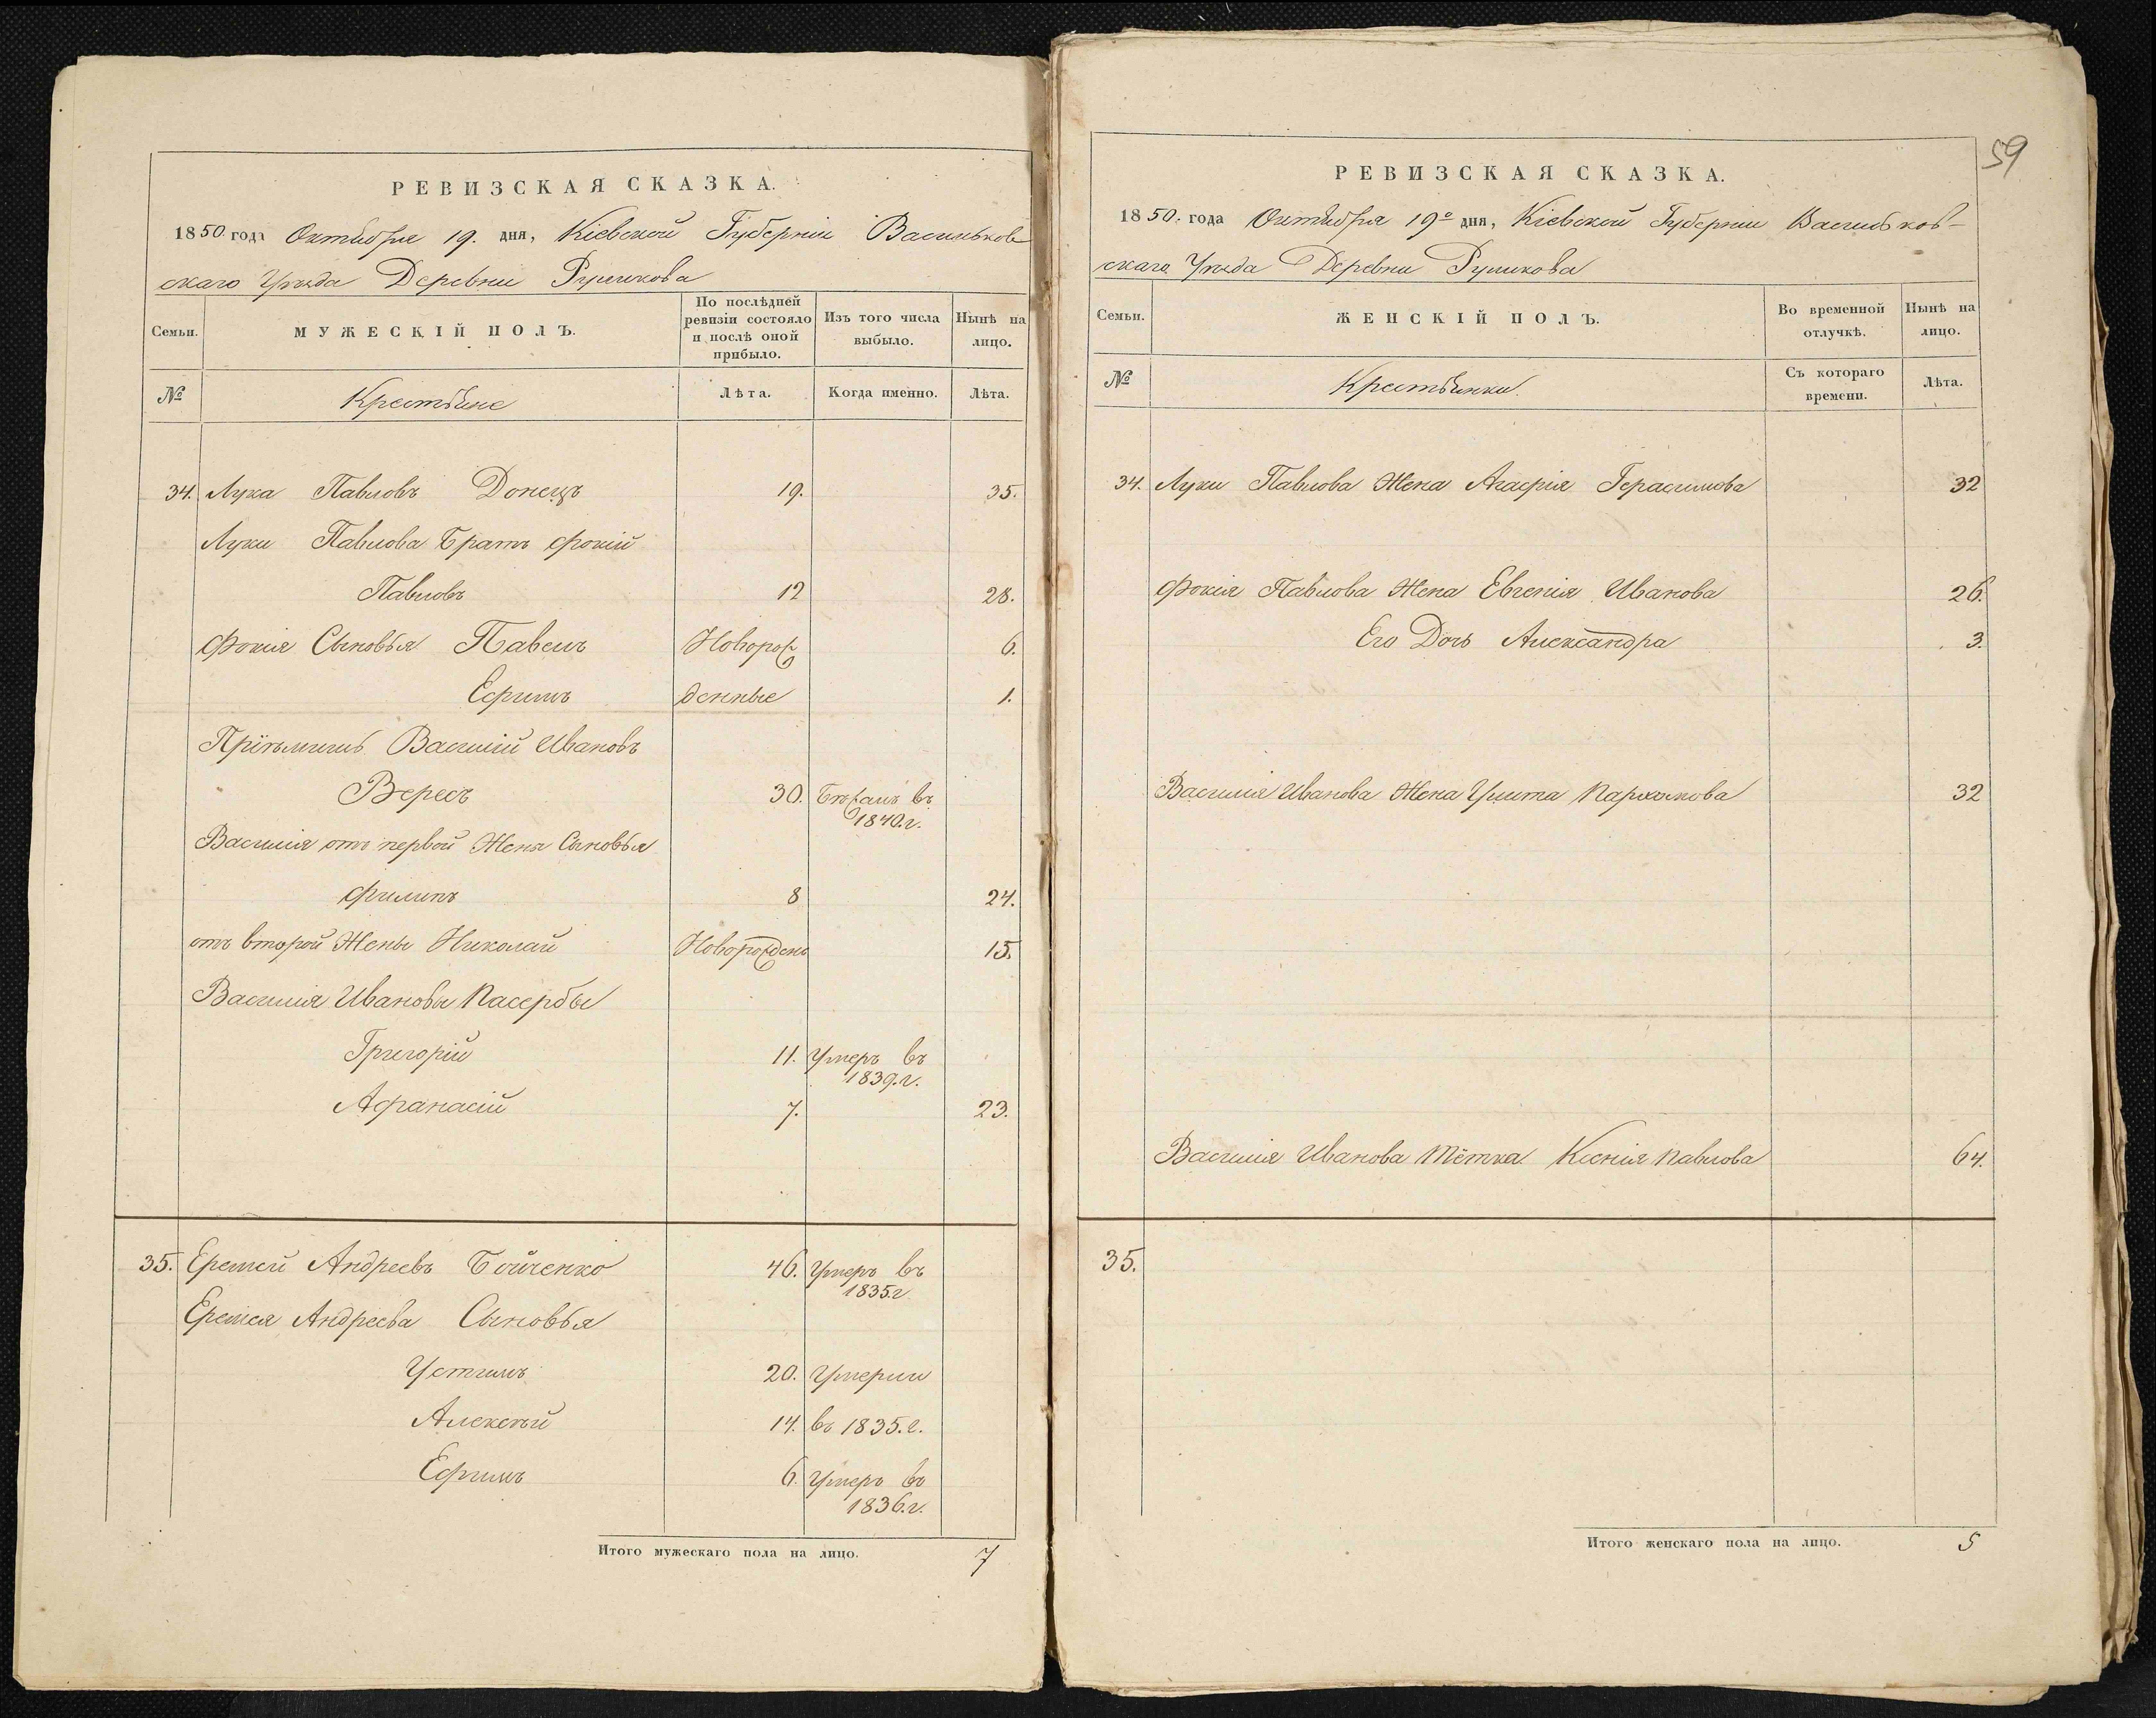 РЕВИЗСКАЯ СКАЗКА.
1850 года Октября 19. дня, Кіевской Губерніи Васильков
скаго Уѣзда Деревни Руликова
Семьи.
МУЖЕСКІЙ ПОЛЪ.
По послѣдней ревизіи состояло и послѣ оной прибыло.
Изъ того числа выбыло.
Нынѣ на лицо.
№
Крестьяне
Лѣта.
Когда именно.
Лѣта.
34. Лука Павловъ Донецъ 19. 35.
Луки Павлова Братъ Фокій
Павловъ 12 28.
Фокія Сыновья Павелъ Новорож 6.
Ефимъ денные 1.
Пріѣмышъ Василій Ивановъ
Вересъ 30. Бѣжалъ въ
1840.г.
Василія отъ первой Жены Сыновья
Филипъ 8 24.
отъ второй Жены Николай Новорожденъ 15.
Василія Иванова Пасербы
Григорій 11. Умеръ въ
1839.г.
Афанасій 7. 23.
35. Еремей Андреевъ Бойченко 46. Умеръ въ
1835.г
Еремея Андреева Сыновья
Устимъ 20. Умерли
Алексѣй 14. въ 1835.г.
Ефимъ 6. Умеръ въ
1836.г.
Итого мужескаго пола на лицо. 7
59
РЕВИЗСКАЯ СКАЗКА.
1850. года Октября 19о дня, Кіевской Губерніи Васильков-
скаго Уѣзда Деревни Руликова
Семьи.
ЖЕНСКІЙ ПОЛЪ.
Во временной отлучкѣ.
Нынѣ на лицо.
№
Крестьянки.
Съ котораго времени.
Лѣта.
34. Луки Павлова Жена Агафія Герасимова 32
Фокія Павлова Жена Евгенія Иванова 26.
Его Дочь Александра 3.
Василія Иванова Жена Улита Пархомова 32
Василія Иванова Тётка Ксенія Павлова 64.
35.
Итого женскаго пола на лицо. 5